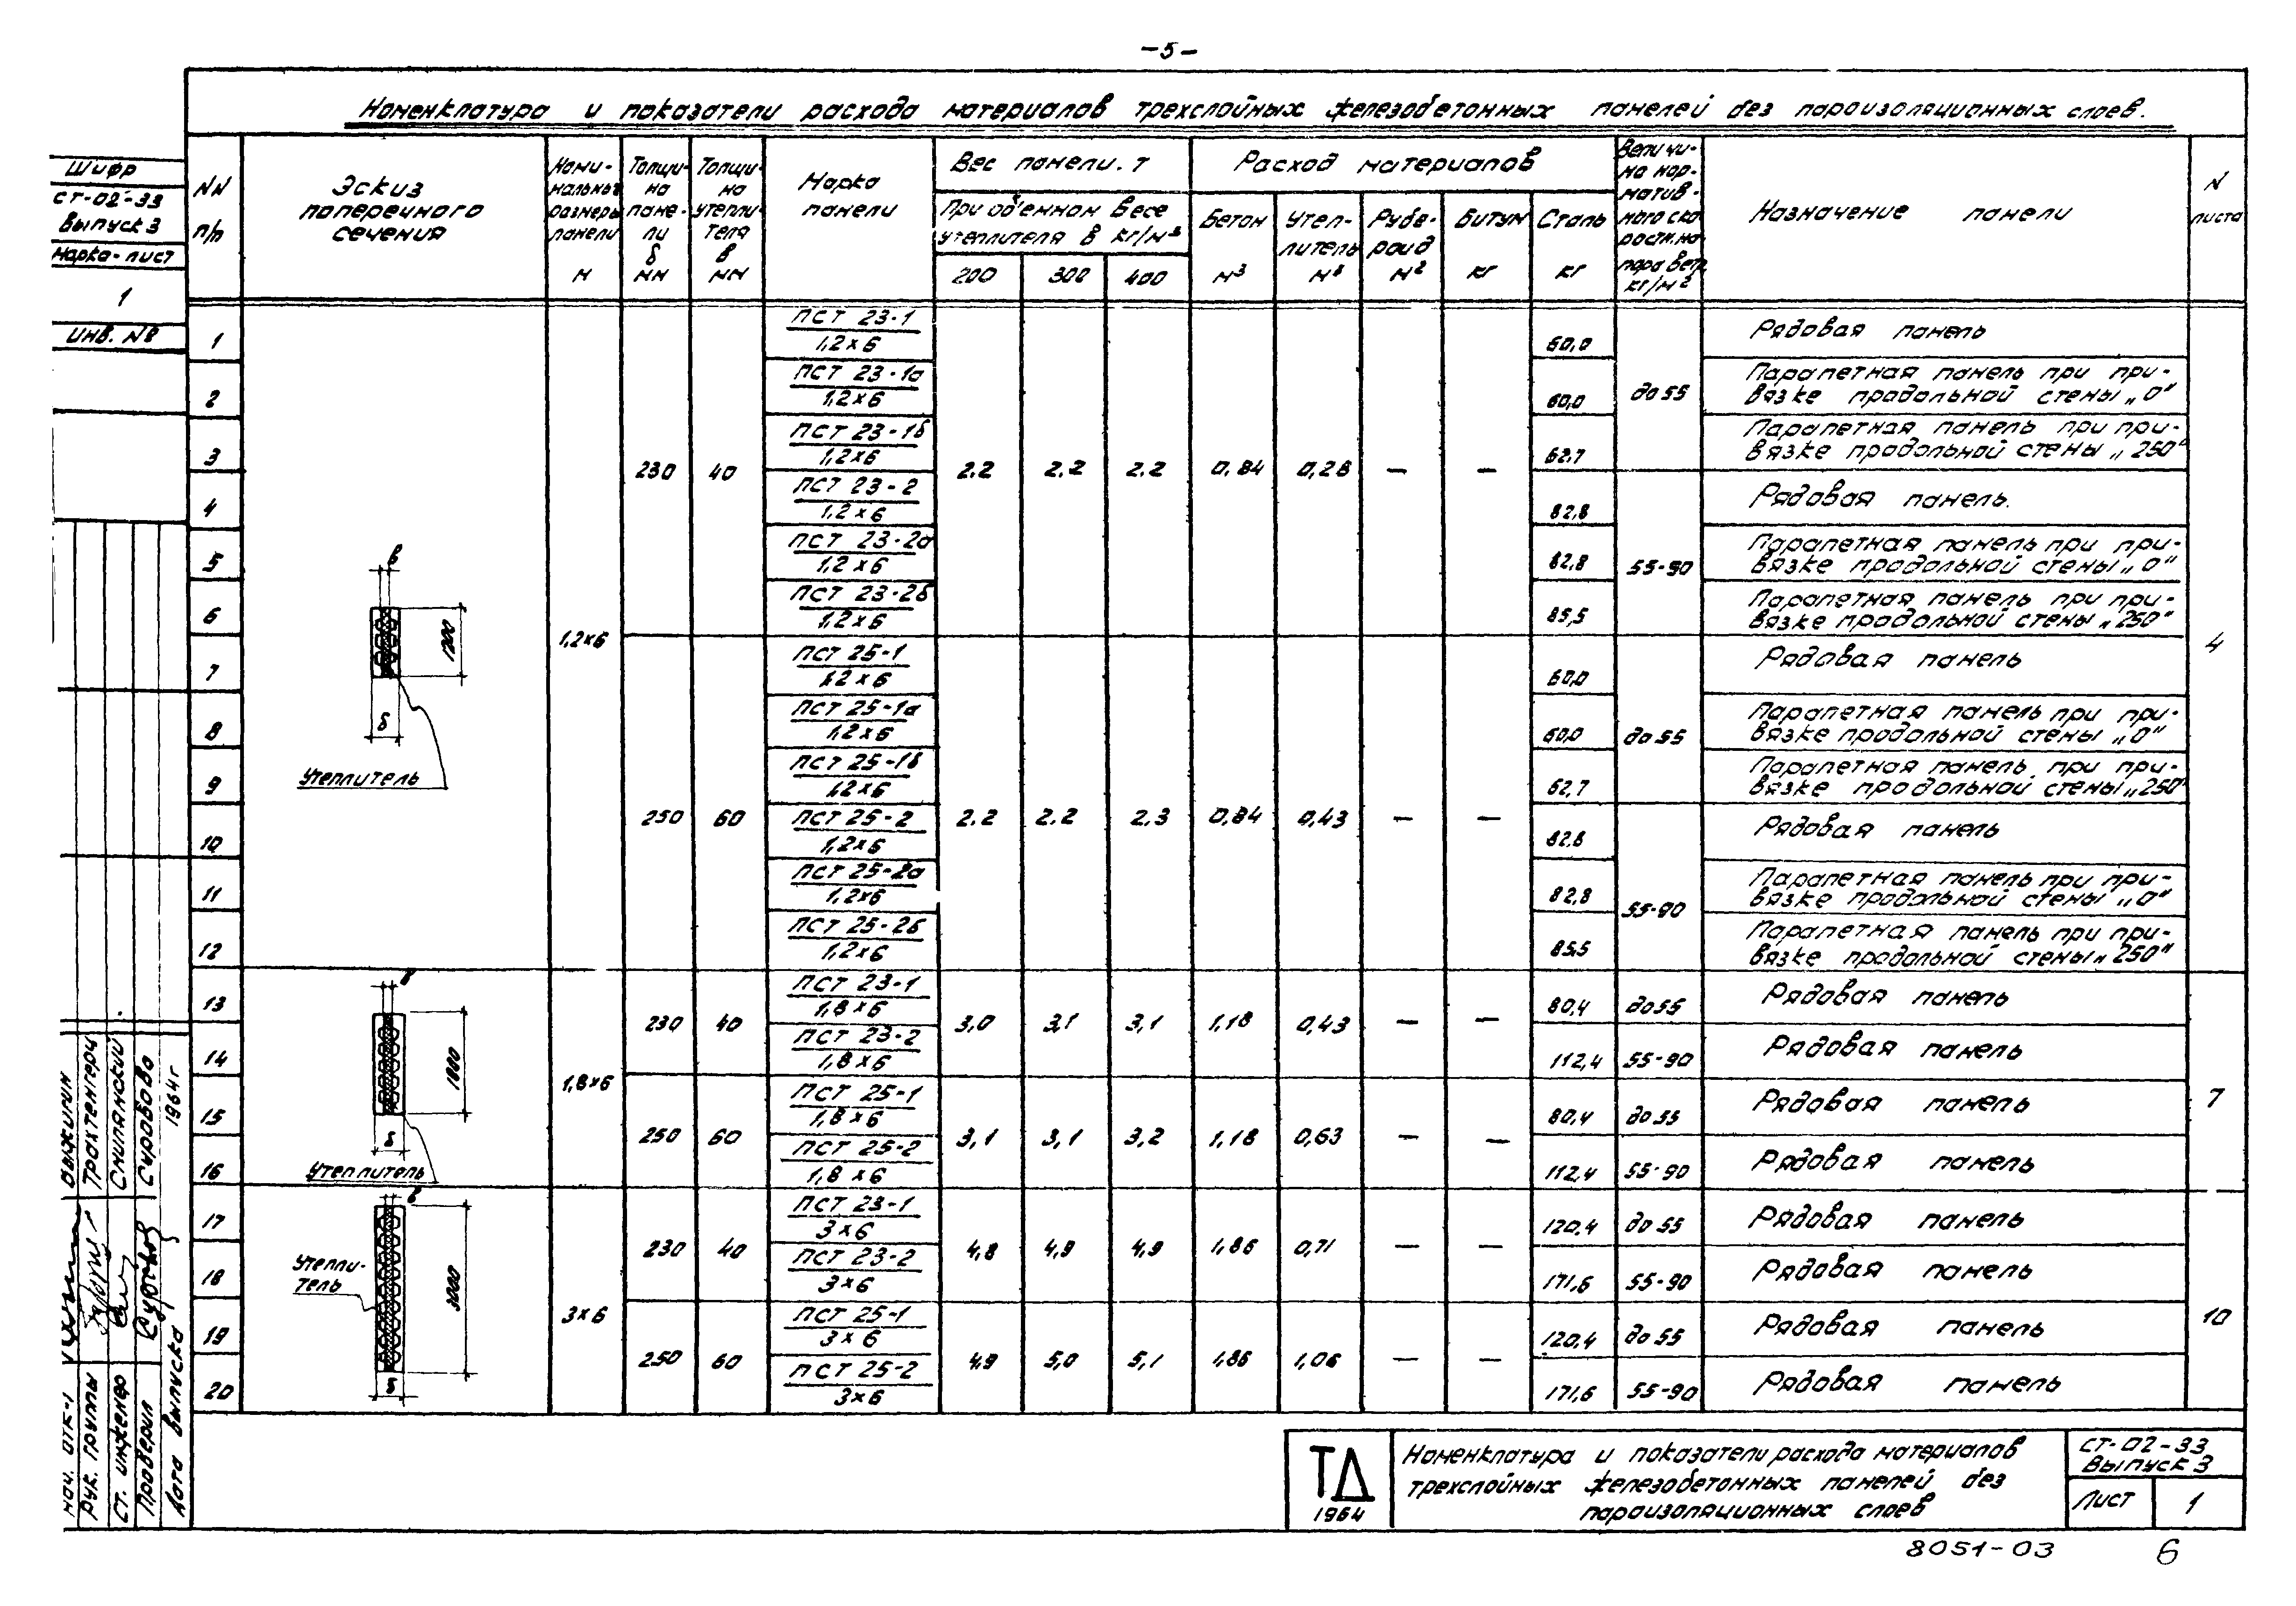 -5-
Номенклатура и показатели расхода материалов трехслойных железобетонных панелей без пароизоляционных слоев.
Шифр
СТ-02-33
Выпуск 3
Марка-лист
1
Инв. №
NN п/п
Эскиз поперечного сечения
Номинальные размеры панели м
Толщина панели δ мм
Толщина утеплителя в мм
Марка панели
Вес панели. т
При об'емном весе утеплителя в кг/м³
200 300 400
Расход материалов
Бетон м³
Утеплитель м³
Рубероид м²
Битум кг
Сталь кг
Величина нормативного скоростн. напора ветр. кг/м²
Назначение панели
N листа
1 ПСТ 23-1 / 1,2×6 60,0 Рядовая панель
2 ПСТ 23-1а / 1,2×6 60,0 до 55 Парапетная панель при привязке продольной стены „0"
3 ПСТ 23-1б / 1,2×6 62,7 Парапетная панель при привязке продольной стены „250"
230 40 2.2 2.2 2.2 0,84 0,28 — —
4 ПСТ 23-2 / 1,2×6 82,8 Рядовая панель.
5 ПСТ 23-2а / 1,2×6 82,8 55-90 Парапетная панель при привязке продольной стены „0"
6 ПСТ 23-2б / 1,2×6 85,5 Парапетная панель при привязке продольной стены „250"
в
1200
δ
Утеплитель
1,2×6
4
7 ПСТ 25-1 / 1,2×6 60,0 Рядовая панель
8 ПСТ 25-1а / 1,2×6 60,0 до 55 Парапетная панель при привязке продольной стены „0"
9 ПСТ 25-1б / 1,2×6 62,7 Парапетная панель при привязке продольной стены „250"
250 60 2.2 2.2 2,3 0,84 0,43 — —
10 ПСТ 25-2 / 1,2×6 82,8 Рядовая панель
11 ПСТ 25-2а / 1,2×6 82,8 55-90 Парапетная панель при привязке продольной стены „0"
12 ПСТ 25-2б / 1,2×6 85,5 Парапетная панель при привязке продольной стены „250"
13 ПСТ 23-1 / 1,8×6 80,4 до 55 Рядовая панель
230 40 3,0 3,1 3,1 1,18 0,43 — —
14 ПСТ 23-2 / 1,8×6 112,4 55-90 Рядовая панель
в
1800
δ
Утеплитель
1,8×6
7
15 ПСТ 25-1 / 1,8×6 80,4 до 55 Рядовая панель
250 60 3,1 3,1 3,2 1,18 0,63 — —
16 ПСТ 25-2 / 1,8×6 112,4 55-90 Рядовая панель
17 ПСТ 23-1 / 3×6 120,4 до 55 Рядовая панель
230 40 4,8 4,9 4,9 1,86 0,71 — —
18 ПСТ 23-2 / 3×6 171,6 55-90 Рядовая панель
в
Утеплитель
3000
δ
3×6
10
19 ПСТ 25-1 / 3×6 120,4 до 55 Рядовая панель
250 60 4,9 5,0 5,1 1,86 1,06 — —
20 ПСТ 25-2 / 3×6 171,6 55-90 Рядовая панель
Нач. ОТК-1
Рук. группы Трахтенгерц
Ст. инженер Смилянский
Проверил Суровова
Дата выпуска 1964г
ТД
1964
Номенклатура и показатели расхода материалов
трехслойных железобетонных панелей без
пароизоляционных слоев
СТ-02-33
Выпуск 3
Лист 1
8051-03 6